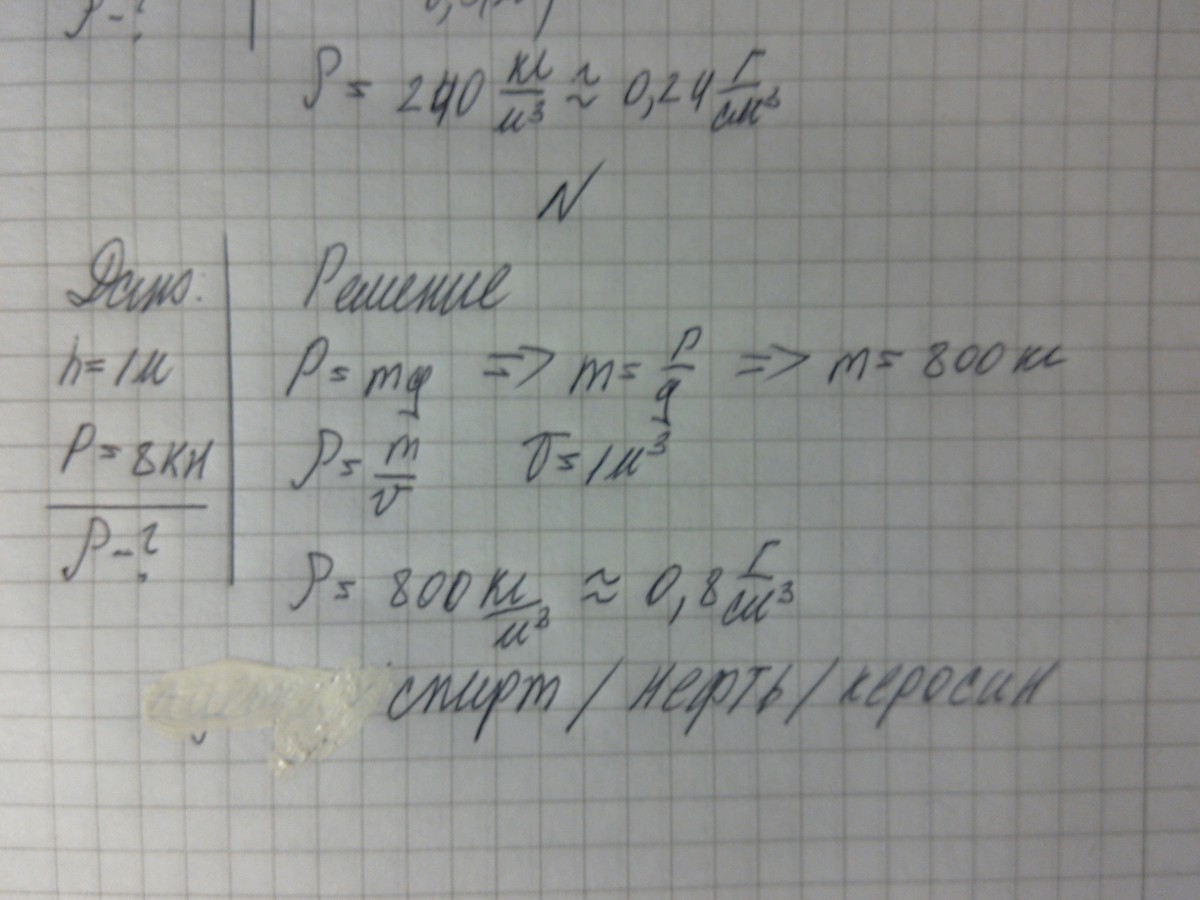 ρ - ?
ρ = 240 кг/м³ ≈ 0,24 г/см³
N
Дано: Решение
h = 1м P = mg => m = P/g => m = 800 кг
P = 8кН ρ = m/V V = 1м³
ρ - ?
ρ = 800 кг/м³ ≈ 0,8 г/см³
спирт / нефть / керосин